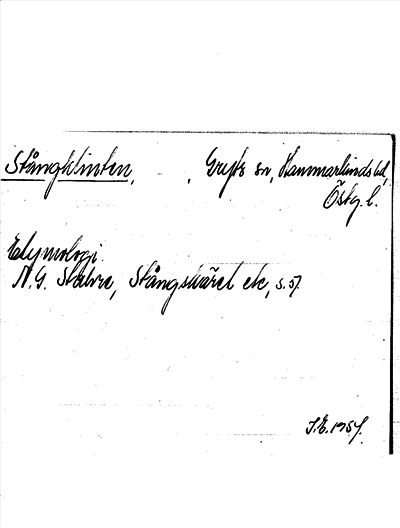 Stångklinten, , Gryts sn, Hammarkinds hd,
Östg. l.
Etymologi.
N. G. Stahre, Stångskäret etc, s. 57.
S.E. 1957.